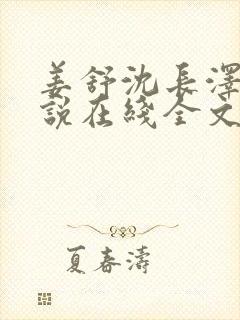 姜舒沈長澤
說在綫全文
夏春濤